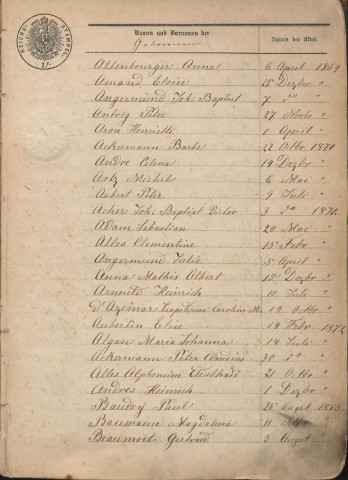 REICHS-STEMPEL
Namen und Vornamen der
Geborenen
Datum des Aktes.
Altenbourger Anna 6 April 1869
Amand Eloise 25 Dezbr "
Angermünd Joh: Baptist 7 do "
Antoig Peter 27 Novbr "
Aron Henriette 1 April "
Ackermann Barbe 22 Otbr 1870
André Celena 19 Dezbr "
Artz Michel 6 Mai "
Aubert Peter 9 Juli "
Acher Joh: Baptist Victor 3 do 1871
Adam Sebastian 20 Mai "
Alles Clementine 15 Febr "
Angermund Julie 5 April "
Anna Mathis Albert 15 Dezbr "
Heinrich 10 Juli "
d'Azemar Leopoldine Caroline M. 19 Otbr "
Aubertin Elise 19 Febr 1872
Algan Maria Johanna 14 Juli "
Ackermann Peter Claudius 30 do "
Alles Alphonsine 21 Otbr "
Andres Heinrich 1 Dezbr "
Baudry Paul 25 Augst 1863
Baumann Magdalena 11 Otbr "
Beaumont Gertrud 3 Augst "